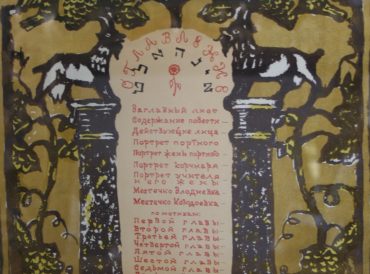 ОГЛАВЛЕНИЕ
Заглавный лист
Содержание повести
Действующие лица
Портрет портного
Портрет жены портного
Портрет корчмаря
Портрет учителя
и его жены
Местечко Злодиевка
Местечко Козодоевка
по мотивам:
Первой главы
Второй главы
Третьей главы
Четвертой главы
Пятой главы
Шестой главы
Седьмой главы